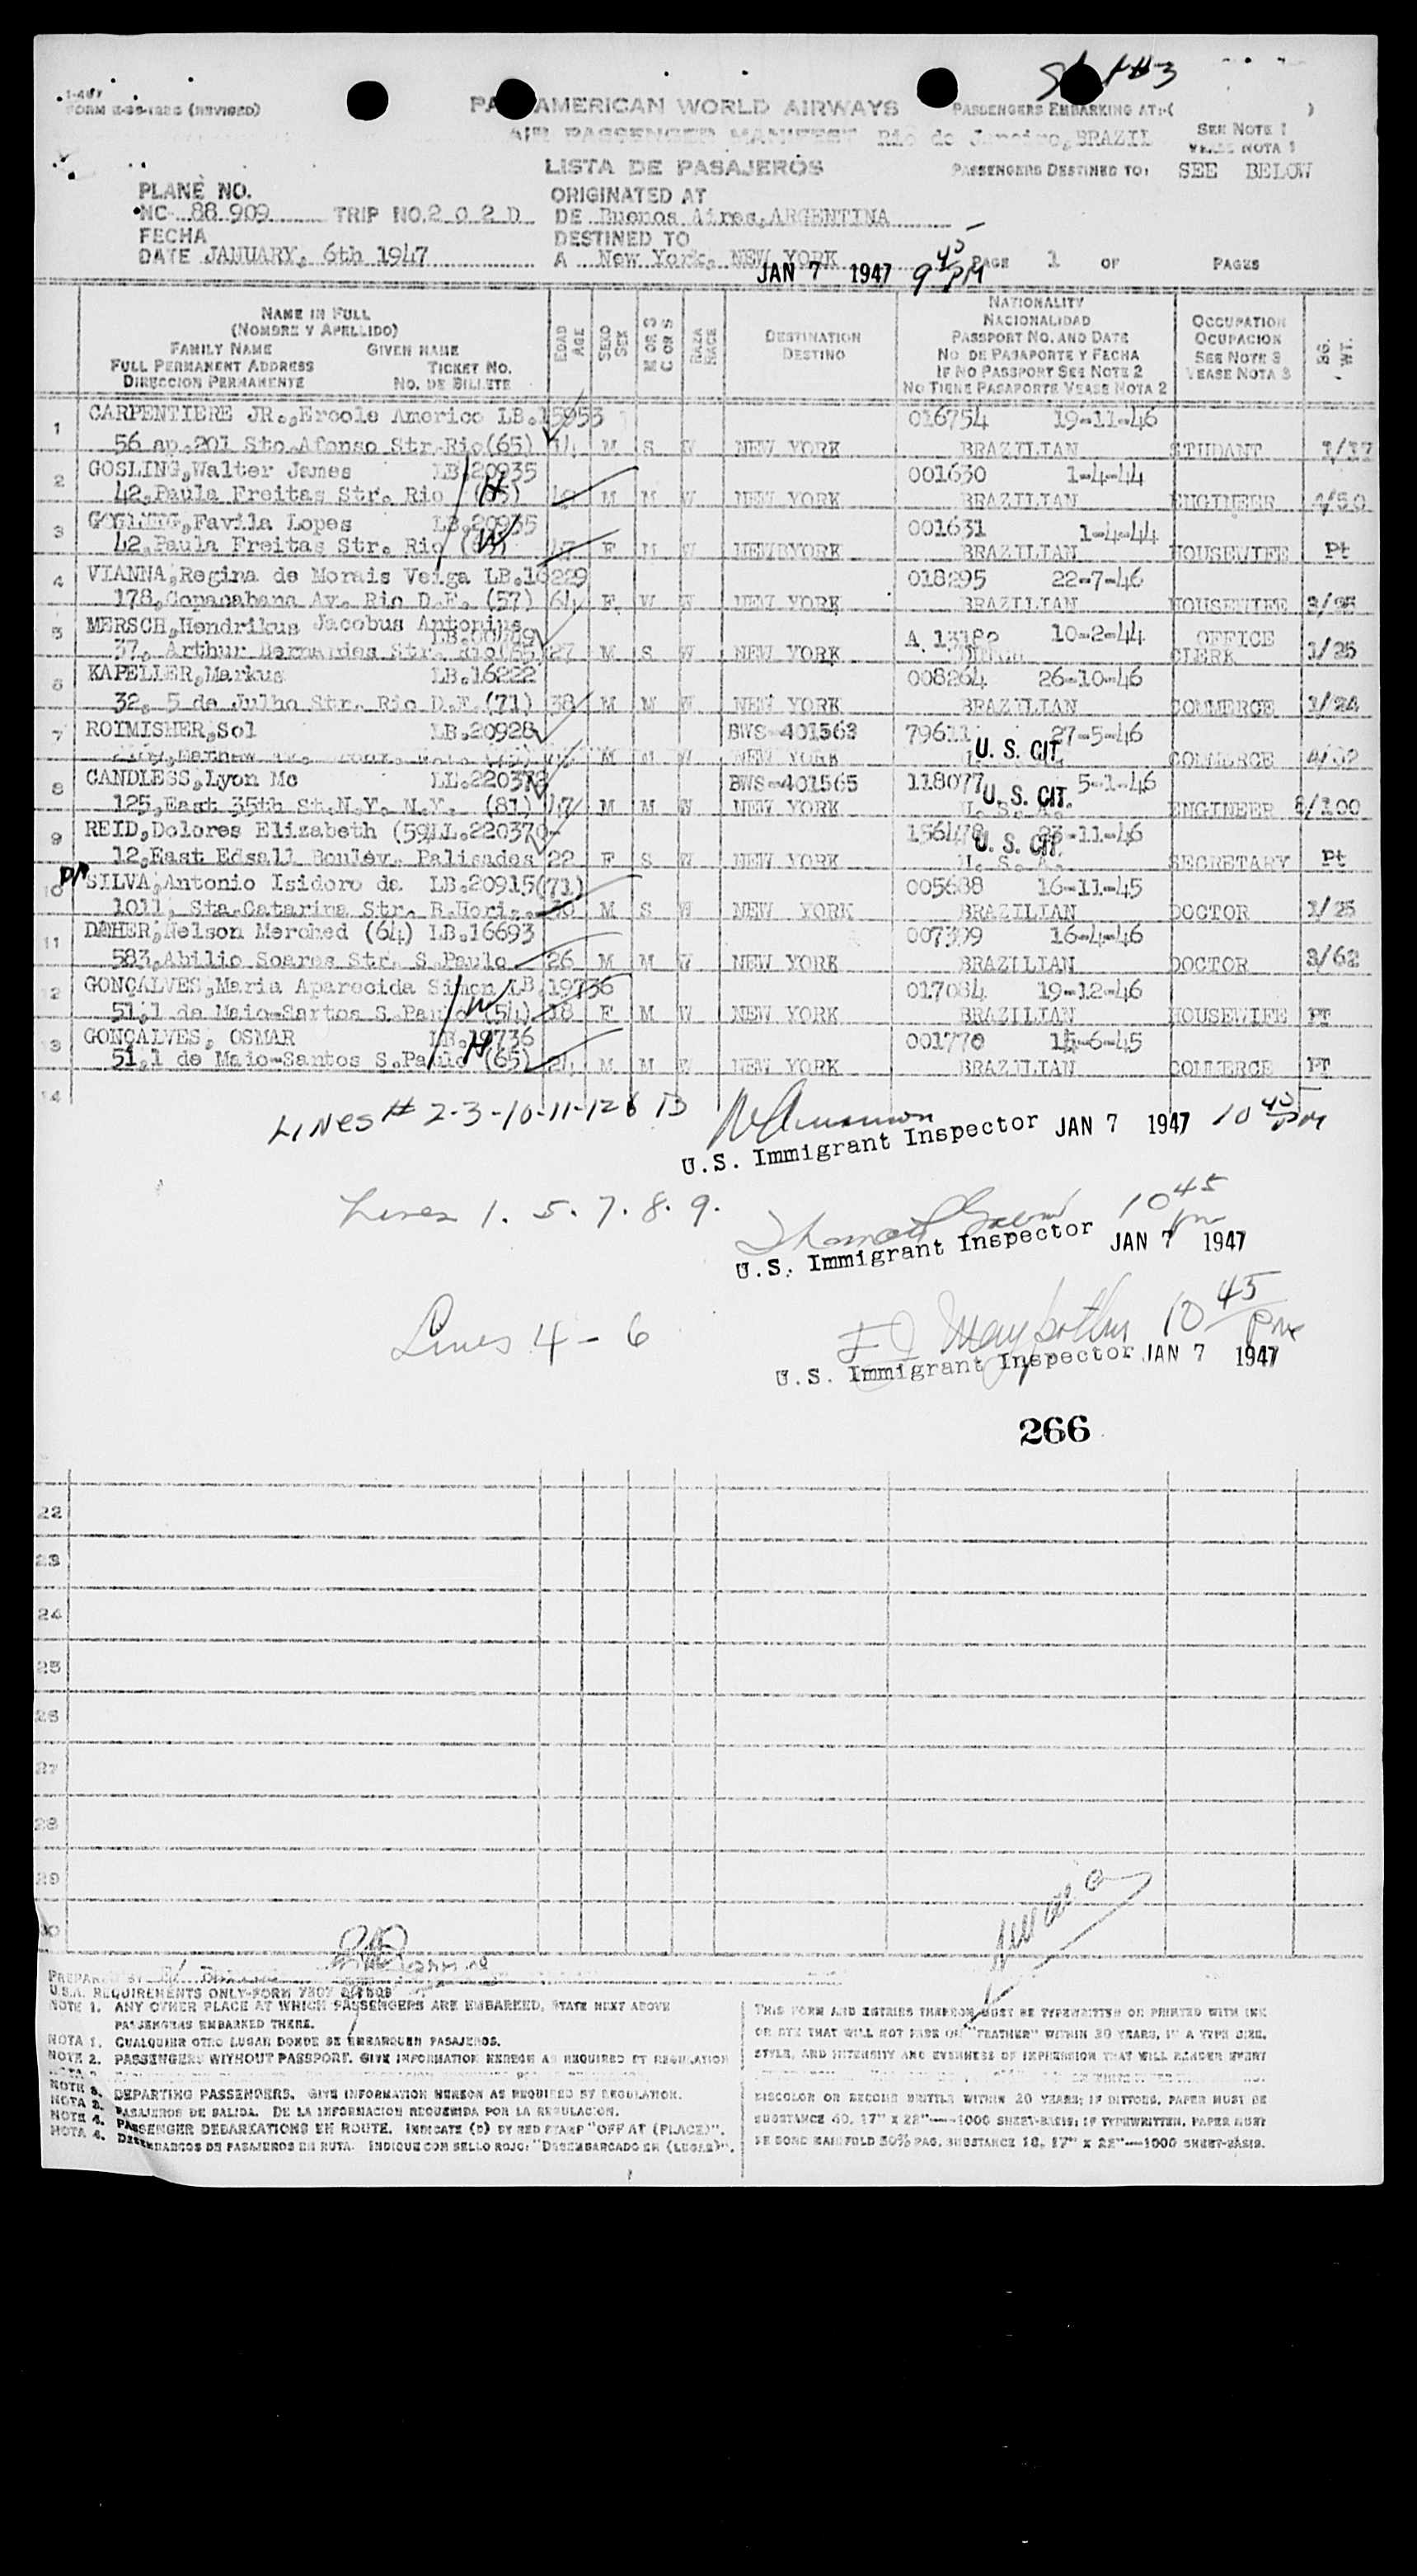 I-467
FORM (REVISED)
AMERICAN WORLD AIRWAYS
PASSENGERS EMBARKING AT:-( )
AIR PASSENGER MANIFEST Rio de Janeiro, BRAZIL
SEE NOTE 1
NOTA 1
LISTA DE PASAJEROS
PASSENGERS DESTINED TO: SEE BELOW
PLANE NO.
NC- 88 909 TRIP NO. 2 0 2 D
ORIGINATED AT
DE Buenos Aires, ARGENTINA
FECHA
DATE JANUARY, 6th 1947
DESTINED TO
A New York, NEW YORK
JAN 7 1947 9 45 PM
PAGE 1 OF PAGES
NAME IN FULL
(NOMBRE Y APELLIDO)
FAMILY NAME GIVEN NAME
FULL PERMANENT ADDRESS TICKET NO.
DIRECCION PERMANENTE NO. DE BILLETE
EDAD AGE
SEXO SEX
M OR S C OR S
RAZA RACE
DESTINATION
DESTINO
NATIONALITY
NACIONALIDAD
PASSPORT NO. AND DATE
NO. DE PASAPORTE Y FECHA
IF NO PASSPORT SEE NOTE 2
NO TIENE PASAPORTE VEASE NOTA 2
OCCUPATION
OCUPACION
SEE NOTE 3
VEASE NOTA 3
BG. WT.
1 CARPENTIERE JR.,Ercole Americo LB.15953 016754 19-11-46
56 ap.201 Sto.Afonso Str.Rio(65) 14 M S W NEW YORK BRAZILIAN STUDANT 1/17
2 GOSLING,Walter James LB.20935 001630 1-4-44
42,Paula Freitas Str. Rio H M M W NEW YORK BRAZILIAN ENGINEER 4/50
3 GOSLING,Favila Lopes LB.20935 001631 1-4-44
42,Paula Freitas Str. Rio W 47 F M W NEW YORK BRAZILIAN HOUSEWIFE Pt
4 VIANNA,Regina de Morais Veiga LB.16229 018295 22-7-46
178,Copacabana Av. Rio D.F. (57) 64 F W W NEW YORK BRAZILIAN HOUSEWIFE
5 MERSCH,Hendrikus Jacobus Antonius 10-2-44 OFFICE
37, Arthur Bernardes Str. Rio 27 M S W NEW YORK DUTCH CLERK 1/25
6 KAPELLER,Markus LB.16222 008264 26-10-46
32, 5 de Julho Str. Rio D.F.(71) 38 M M W NEW YORK BRAZILIAN COMMERCE 1/24
7 ROIMISHER,Sol LB.20928 BWS-401563 79611 27-5-46
M M W NEW YORK U. S. CIT. COMMERCE
8 CANDLESS,Lyon Mc LL.220372 BWS-401565 118077 5-1-46
125,East 35th St.N.Y. N.Y. (81) 47 M M W NEW YORK U. S. CIT. U. S. A. ENGINEER /100
9 REID,Dolores Elizabeth (59)LL.220370 -11-46
12,East Edsall Boulev. Palisades 22 F S W NEW YORK U. S. CIT. U. S. A. SECRETARY Pt
10 SILVA,Antonio Isidoro da LB.20915(71) 005688 16-11-45
1011, Sta.Catarina Str. B.Horiz. 30 M S W NEW YORK BRAZILIAN DOCTOR 1/25
11 DAHER,Nelson Merched (64) LB.16693 007399 16-4-46
583,Abilio Soares Str. S.Paulo 26 M M W NEW YORK BRAZILIAN DOCTOR 3/62
12 GONÇALVES,Maria Aparecida Simon LB.19736 017084 19-12-46
51,1 de Maio-Santos S.Paulo (54) W 18 F M W NEW YORK BRAZILIAN HOUSEWIFE PT
13 GONÇALVES, OSMAR LB.19736 001770 15-6-45
51,1 de Maio-Santos S.Paulo (65) H 24 M M W NEW YORK BRAZILIAN COMMERCE PT
14
LINES # 2-3-10-11-12 & 13
U.S. Immigrant Inspector JAN 7 1947 10 45 PM
Lines 1. 5. 7. 8. 9.
10 45 pm
U.S. Immigrant Inspector JAN 7 1947
Lines 4 - 6
10 45 PM
U.S. Immigrant Inspector JAN 7 1947
266
22
23
24
25
26
27
28
29
30
PREPARED BY
U.S.A. REQUIREMENTS ONLY-FORM 7507
NOTE 1. ANY OTHER PLACE AT WHICH PASSENGERS ARE EMBARKED, STATE NEXT ABOVE
PASSENGERS EMBARKED THERE.
NOTA 1. CUALQUIER OTRO LUGAR DONDE SE EMBARQUEN PASAJEROS.
NOTE 2. PASSENGERS WITHOUT PASSPORT. GIVE INFORMATION HEREON AS REQUIRED BY REGULATION
NOTE 3. DEPARTING PASSENGERS. GIVE INFORMATION HEREON AS REQUIRED BY REGULATION.
NOTA 3. PASAJEROS DE SALIDA. DE LA INFORMACION REQUERIDA POR LA REGULACION.
NOTE 4. PASSENGER DEBARKATIONS EN ROUTE. INDICATE (D) BY RED STAMP "OFF AT (PLACE)".
NOTA 4. DESEMBARCOS DE PASAJEROS EN RUTA. INDIQUE CON SELLO ROJO: "DESEMBARCADO EN (LUGAR)".
THIS FORM AND ENTRIES THEREON MUST BE TYPEWRITTEN OR PRINTED WITH INK
OR DYE THAT WILL NOT FADE OR "FEATHER" WITHIN 20 YEARS, IN A TYPE SIZE,
STYLE, AND INTENSITY AND EVENNESS OF IMPRESSION THAT WILL RENDER EVERY
DISCOLOR OR BECOME BRITTLE WITHIN 20 YEARS; IF DITTOED, PAPER MUST BE
SUBSTANCE 40, 17" X 22"—1000 SHEET-BASIS; IF TYPEWRITTEN, PAPER MUST
BE BOND MANIFOLD 50% RAG, SUBSTANCE 18, 17" X 22"—1000 SHEET-BASIS.